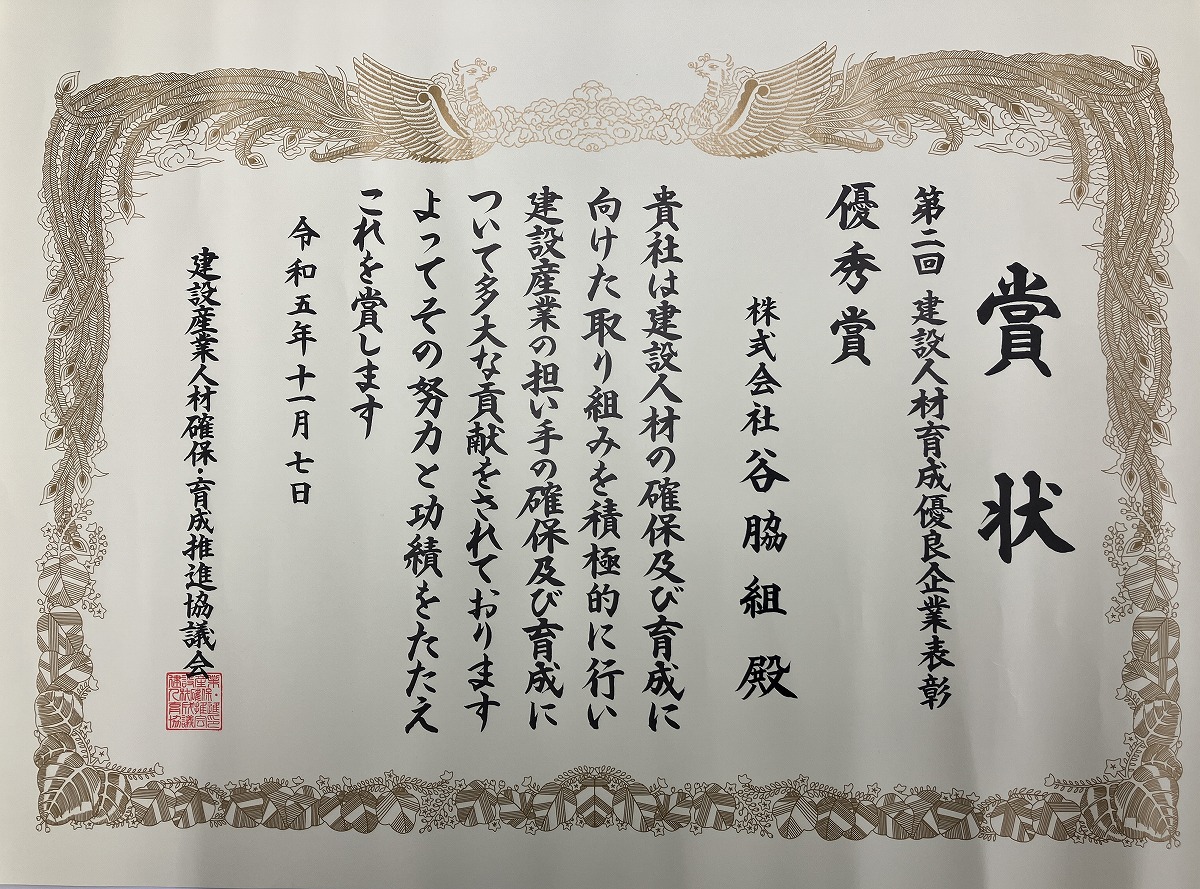 賞状
第二回 建設人材育成優良企業表彰
優秀賞
株式会社谷脇組 殿
貴社は建設人材の確保及び育成に
向けた取り組みを積極的に行い
建設産業の担い手の確保及び育成に
ついて多大な貢献をされております
よってその努力と功績をたたえ
これを賞します
令和五年十一月七日
建設産業人材確保・育成推進協議会